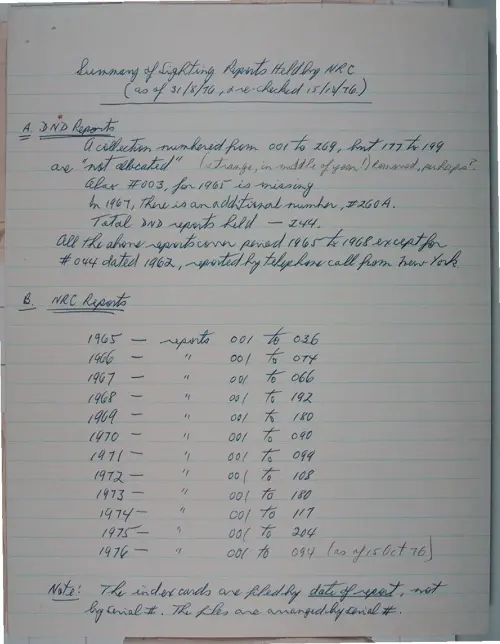 Summary of Sighting Reports Held by NRC
(as of 31/8/76, & re-checked 15/10/76.)
A. DND Reports
A collection numbered from 001 to 269, but 177 to 199
are "not allocated" (strange, in middle of year!) Removed, perhaps?
Also #003, for 1965 is missing
In 1967, there is an additional number, #260A.
Total DND reports held — 244.
All the above reports cover period 1965 to 1968 except for
#044 dated 1962, reported by telephone call from New York.
B. NRC Reports
1965 — reports 001 to 036
1966 — " 001 to 074
1967 — " 001 to 066
1968 — " 001 to 192
1969 — " 001 to 180
1970 — " 001 to 090
1971 — " 001 to 099
1972 — " 001 to 108
1973 — " 001 to 180
1974 — " 001 to 117
1975 — " 001 to 204
1976 — " 001 to 094 (as of 15 Oct 76)
Note: The index cards are filed by date of report, not
by serial #. The files are arranged by serial #.